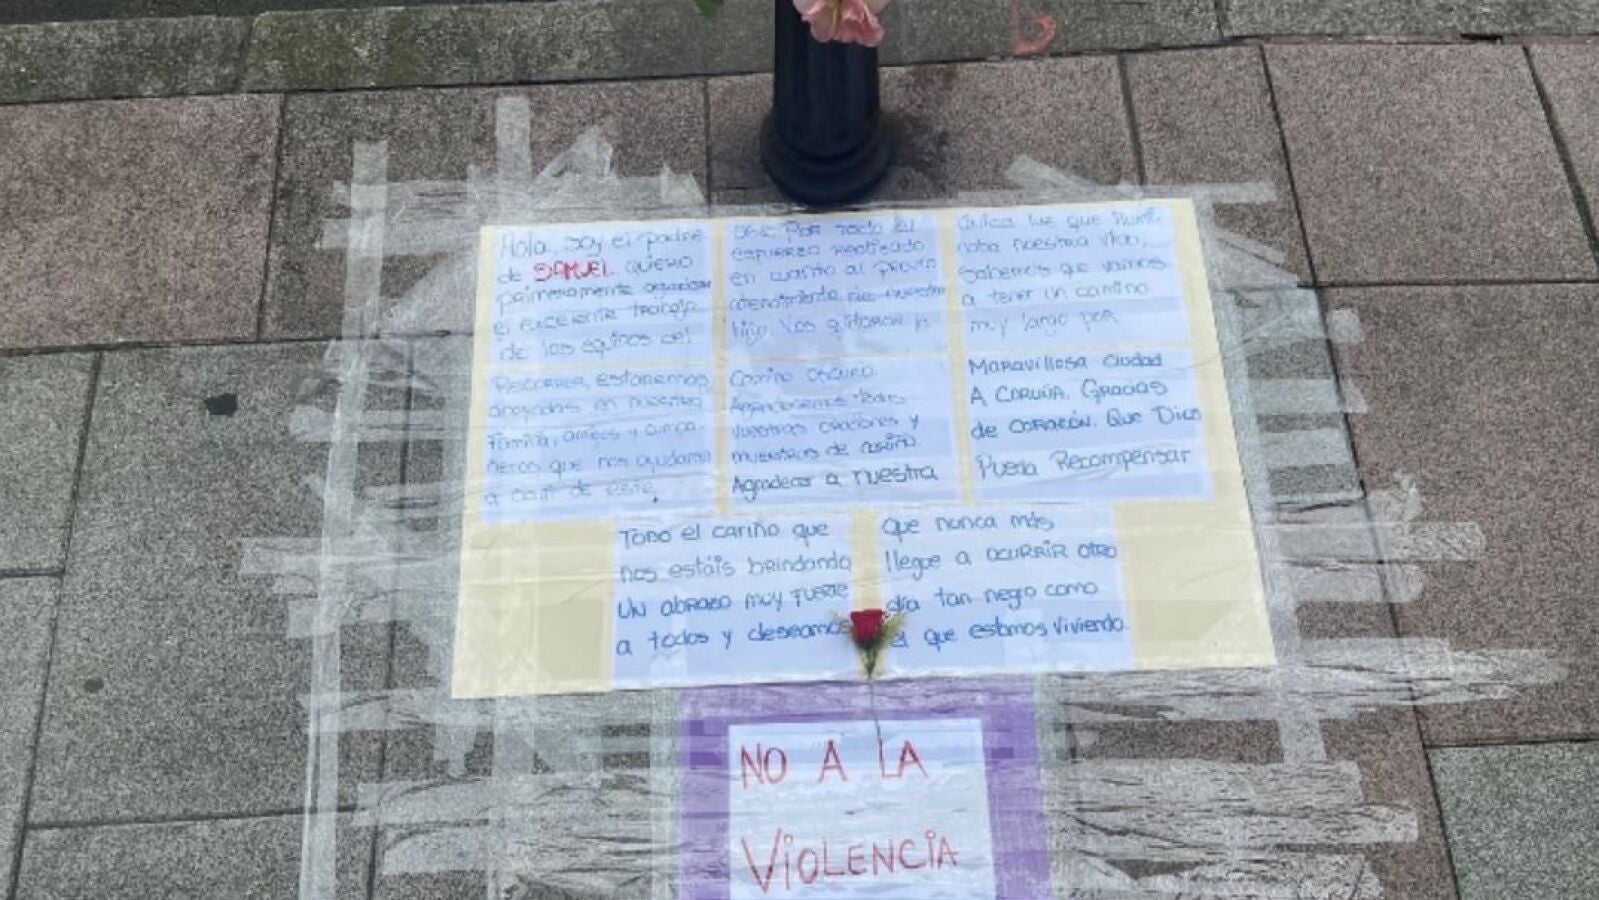 Hola soy el padre
de SAMUEL. QUIERO
primeramente agradecer
el EXCELENTE TRABAJO
de los equipos del
091. POR TODO EL
ESFUERZO REALIZADO
en cuanto al pronto
atendimiento de nuestro
hijo. Nos quitaron la
única luz que ilumi-
naba nuestra vida,
sabemos que vamos
a tener un camino
muy largo por
RECORRER, estaremos
apoyados en nuestra
familia, amigos y compa-
ñeros que nos ayudaran
a salir de este
Camino OSCURO.
Agradecemos todas
vuestras oraciones y
muestras de cariño.
Agradecer a nuestra
MARAVILLOSA ciudad
A CORUÑA. GRACIAS
de CORAZÓN. Que Dios
Pueda Recompensar
TODO el cariño que
nos estáis brindando
UN abrazo muy FUERTE
a todos y deseamos
que nunca más
llegue a OCURRIR OTRO
día tan negro como
el que estamos viviendo.
NO A LA
VIOLENCIA